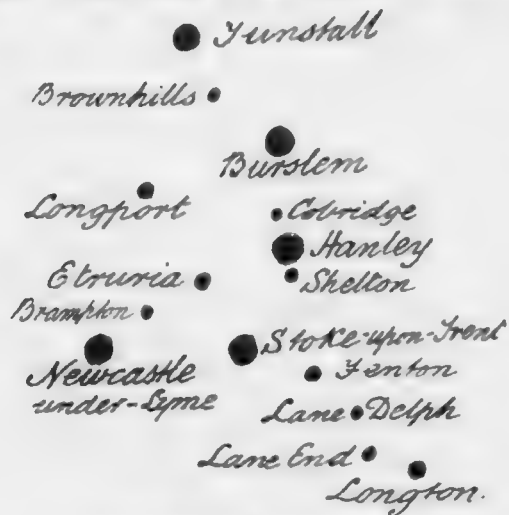 Tunstall
Brownhills
Burslem
Longport
Cobridge
Hanley
Etruria
Shelton
Brampton
Stoke-upon-Trent
Newcastle
under-Lyme
Fenton
Lane Delph
Lane End
Longton.